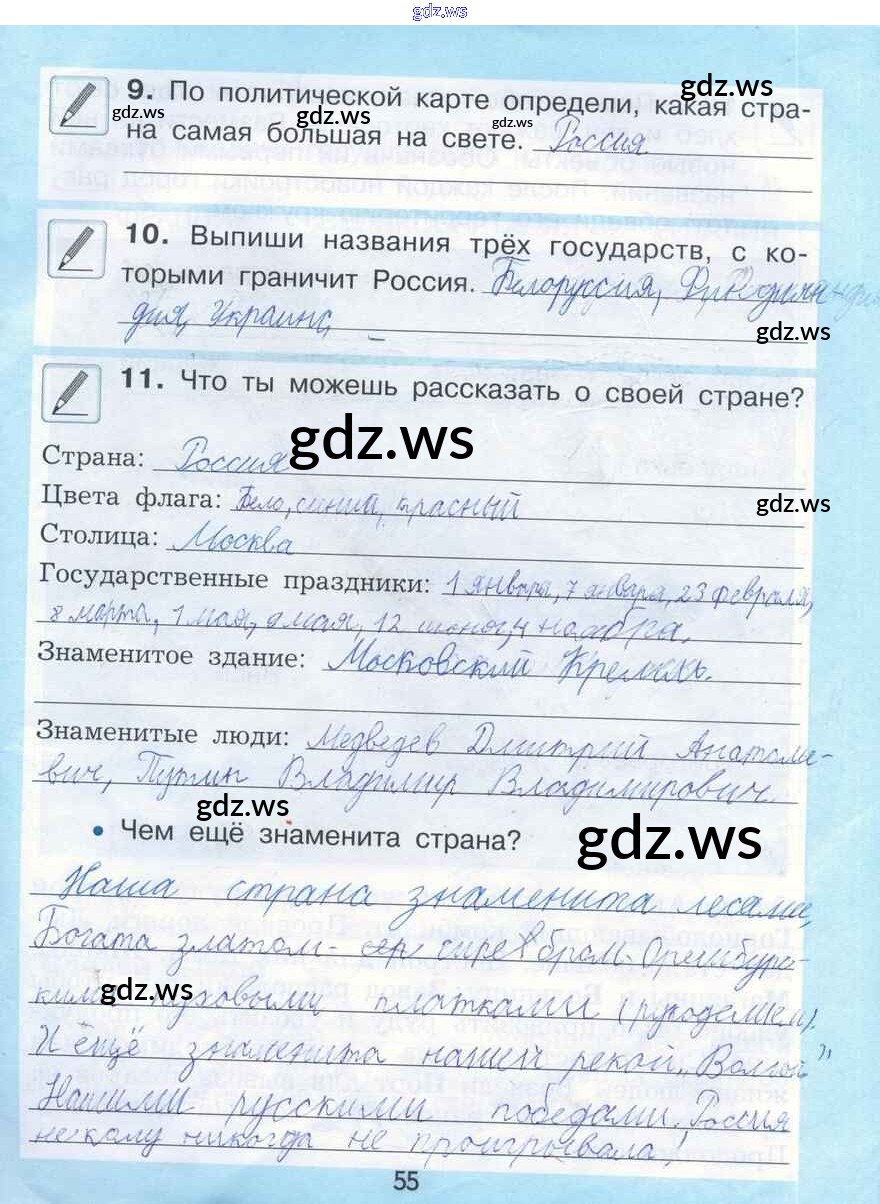 gdz.ws
9. По политической карте определи, какая стра-
gdz.ws
gdz.ws
gdz.ws
gdz.ws
на самая большая на свете. Россия
10. Выпиши названия трёх государств, с ко-
торыми граничит Россия. Белоруссия,
дия, Украина,
gdz.ws
11. Что ты можешь рассказать о своей стране?
gdz.ws
Страна: Россия
Цвета флага: Бело, синий, красный
gdz.ws
Столица: Москва
Государственные праздники: 1 января, 7 января, 23 февраля,
8 марта, 1 мая, 9 мая, 12 июня, 4 ноября.
Знаменитое здание: Московский Кремль.
Знаменитые люди: Медведев Дмитрий Анатоль-
евич, Путин Владимир Владимирович.
gdz.ws
• Чем ещё знаменита страна?
gdz.ws
Наша страна знаменита лесами,
Богата златом-
gdz.ws
пуховыми платками
И ещё знаменита нашей рекой „Волгой"
Нашими русскими победами. Россия
никогда не проигрывала!
55